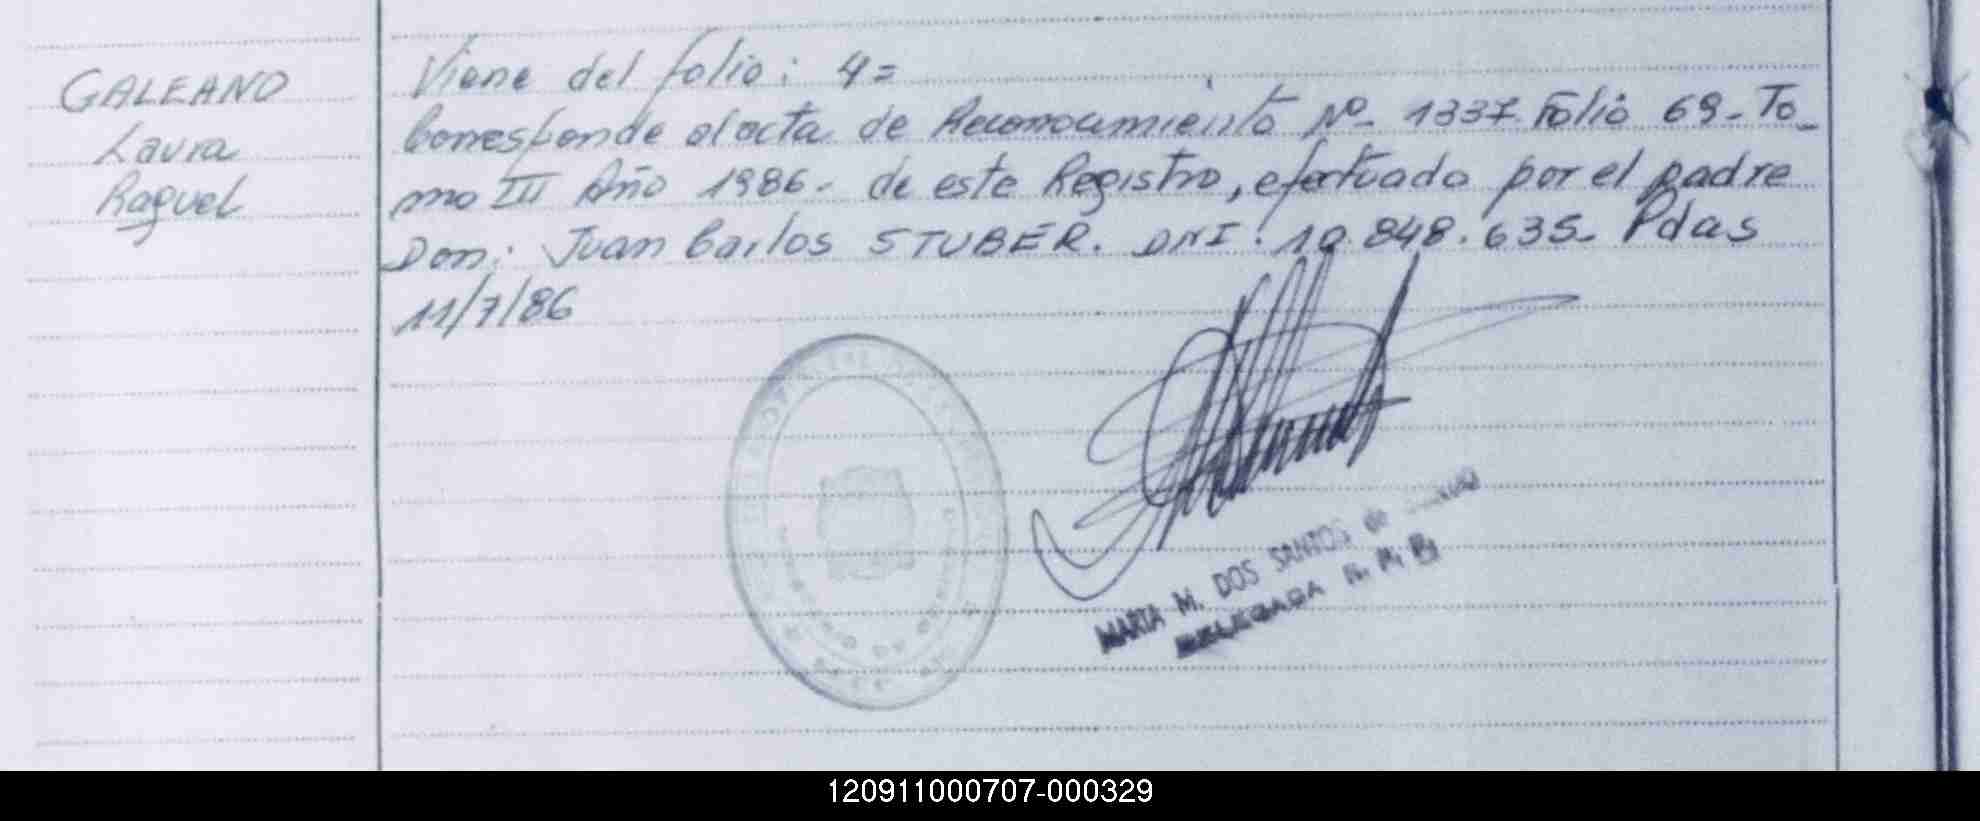 GALEANO
Laura
Raquel
Viene del folio: 4=
Corresponde al acta de Reconocimiento Nº- 1337 Folio 69-To-
mo III Año 1986- de este Registro, efectuado por el padre
Don: Juan Carlos STUBER. DNI: 10.848.635- Pdas
11/7/86
MARIA M. DOS SANTOS de
DELEGADA
120911000707-000329